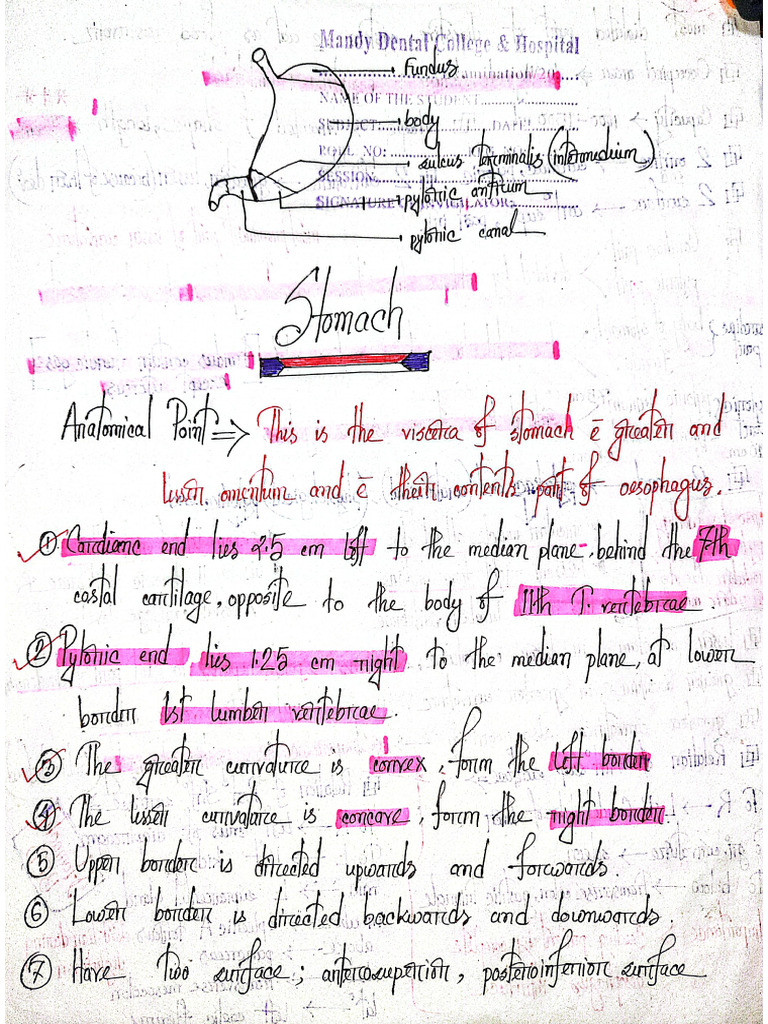 Mandy Dental College & Hospital
Fundus
Examination/20
NAME OF THE STUDENT
body
SUBJECT DATE
sulcus terminalis (intermedium)
ROLL NO:
SESSION
pyloric antrum
SIGNATURE
pyloric canal
Stomach
Anatomical Point ⇒ This is the viscera of stomach c̄ greater and
lesser omentum and c̄ their contents part of oesophagus.
① Cardiac end lies 2.5 cm left to the median plane. behind the 7th
costal cartilage, opposite to the body of 11th T. vertebrae.
② Pyloric end lies 1.25 cm right to the median plane, at lower
border 1st lumber vertebrae.
③ The greater curvature is convex, form the left border
④ The lesser curvature is concave, form the right border
⑤ Upper border is directed upwards and forwards.
⑥ Lower border is directed backwards and downwards.
⑦ Have two surface; anterosuperior, posteroinferior surface